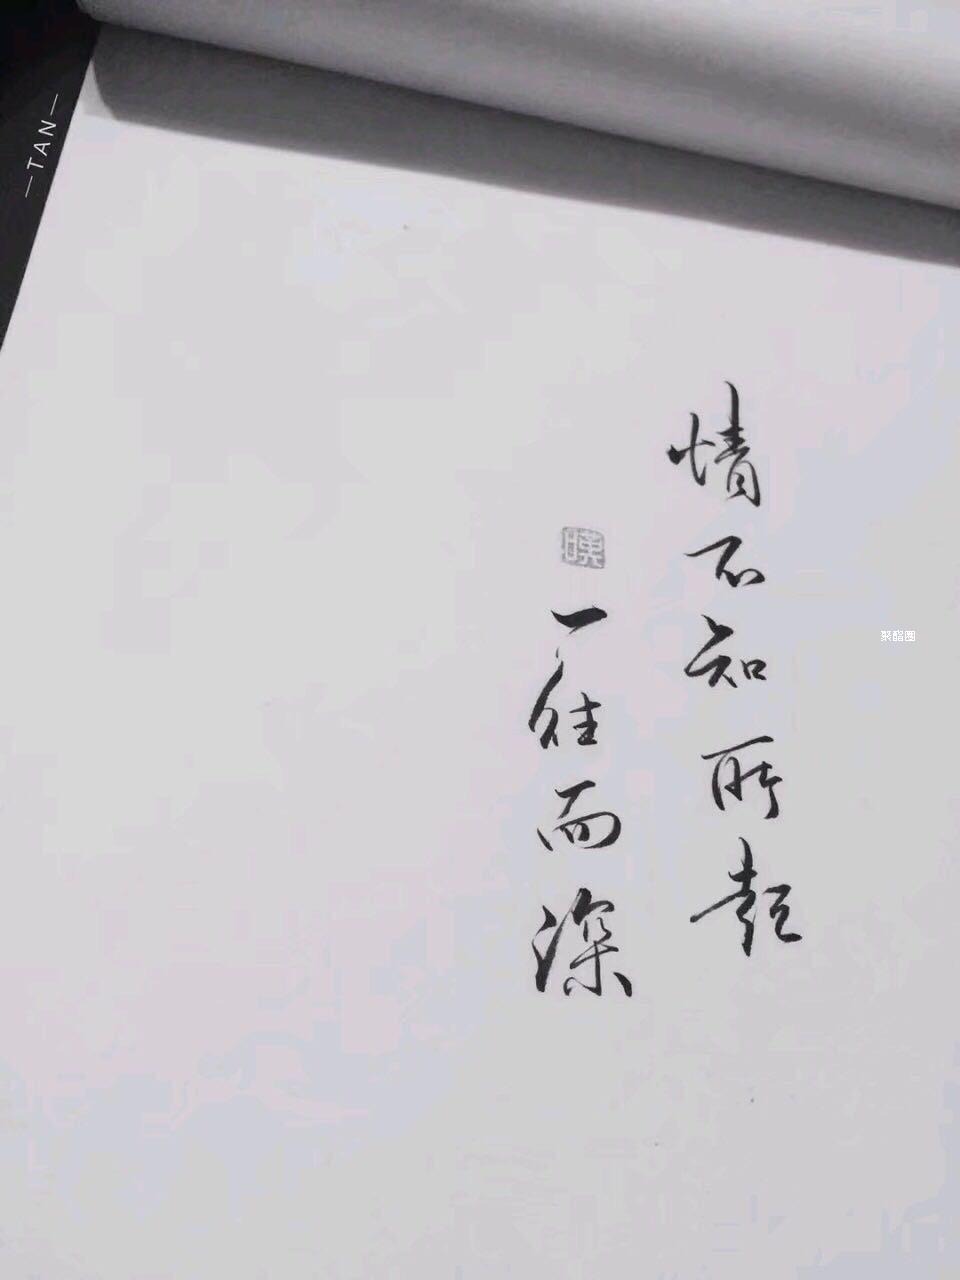 情不知所起
一往而深
—TAN—
聚酯圈